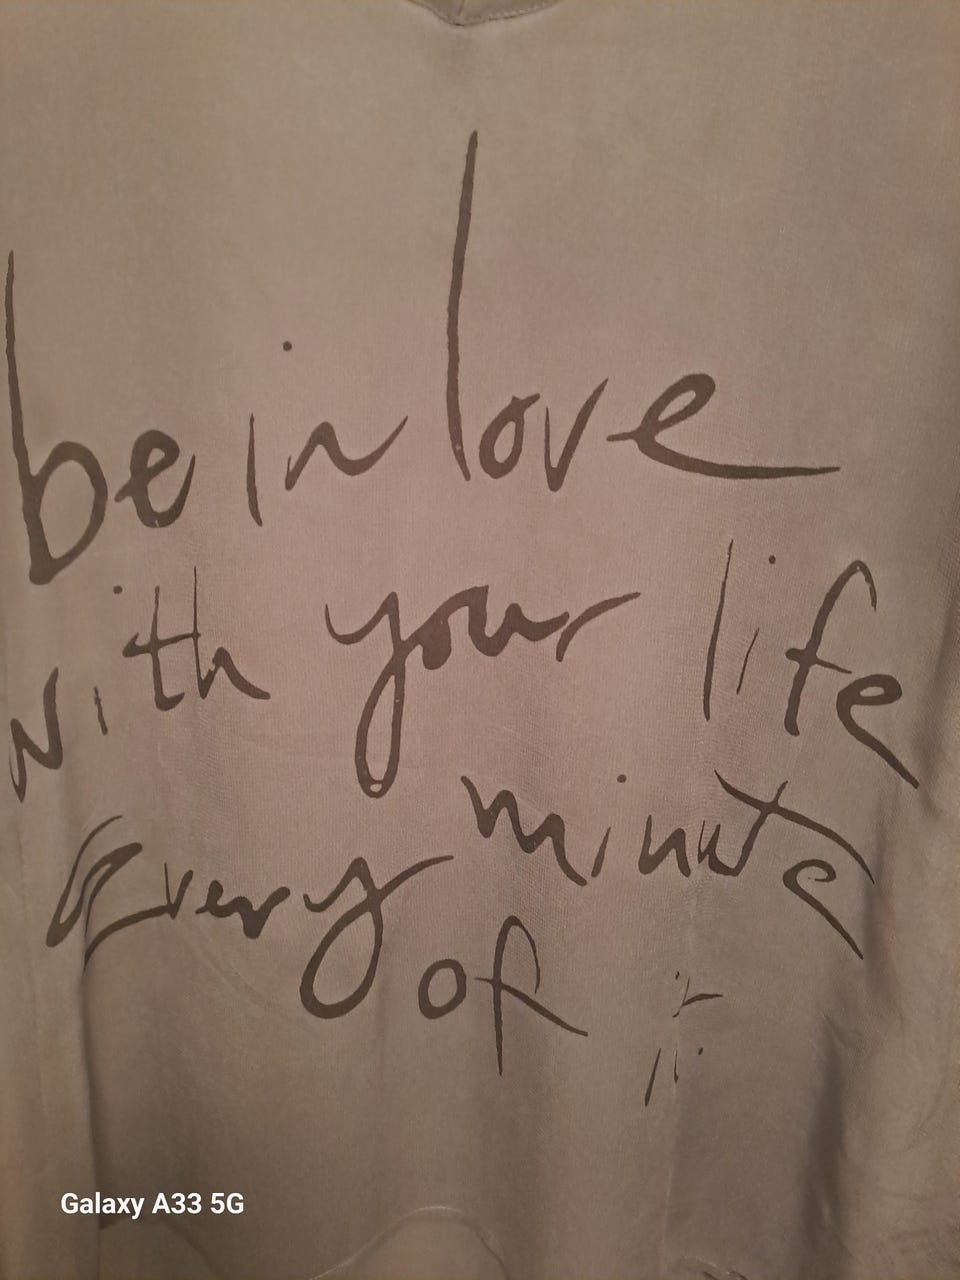 be in love
with your life
Every minute
of it
Galaxy A33 5G